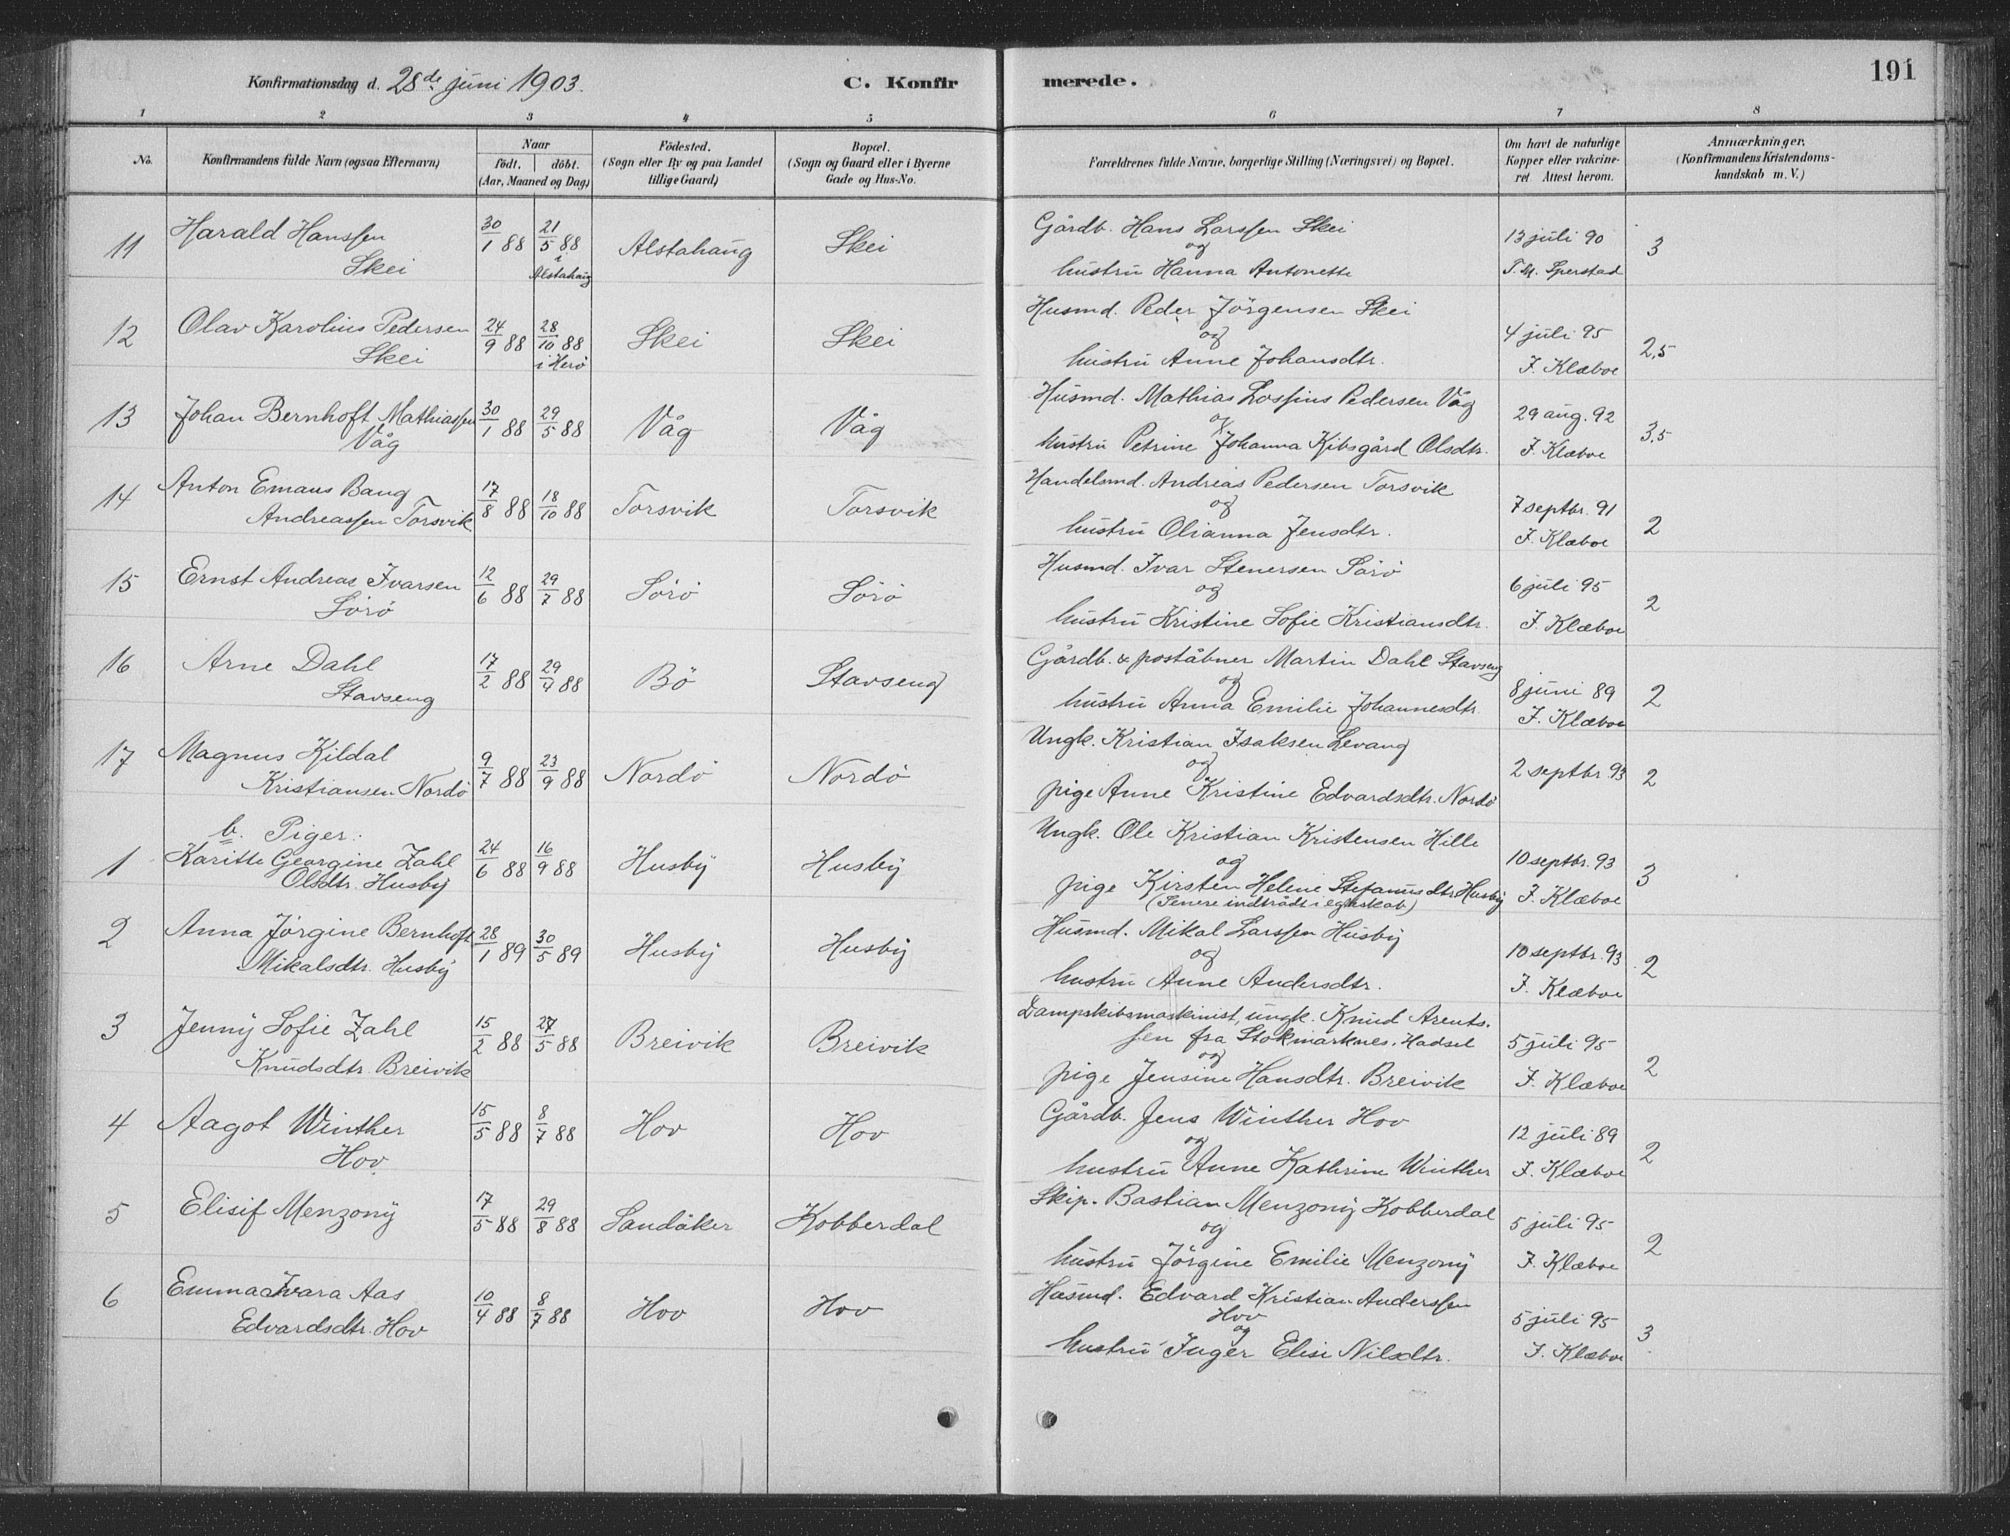 Konfirmationsdag d. 28de juni 1903.
C. Konfirmerede.
191
1 2 3 4 5 6 7 8
No.
Konfirmandens fulde Navn (ogsaa Efternavn)
Naar
födt. döbt.
(Aar, Maaned og Dag)
Födested.
(Sogn eller By og paa Landet
tillige Gaard)
Bopæl.
(Sogn og Gaard eller i Byerne
Gade og Hus-No.
Forældrenes fulde Navne, borgerlige Stilling (Næringsvei) og Bopæl.
Om havt de naturlige
Kopper eller vakcineret
Attest herom.
Anmærkninger.
(Konfirmandens Kristendomskundskab
m. V.)
11 Harald Hanssen 30/1 88 21/5 88 Alstahaug Skei Gårdb. Hans Larssen Skei 13 juli 90 3
Skei i Alstahaug og
hustru Hanna Antonette T. M. Sperstad
12 Olav Karolius Pedersen 24/9 88 28/10 88 Skei Skei Husmd. Peder Jörgensen Skei 4 juli 95 2,5
Skei i Herö og
hustru Anne Johansdtr. J. Klæboe
13 Johan Bernhoft Mathiassen 30/1 88 29/5 88 Våg Våg Husmd. Mathias Lossius Pedersen Våg 29 aug. 92 3,5
Våg og
hustru Petrine Johanna Kibsgård Olsdtr. J. Klæboe
14 Anton Emaus Bang 17/8 88 18/10 88 Torsvik Torsvik Handelsmd. Andreas Pedersen Torsvik 7 septbr. 91 2
Andreassen Torsvik og
hustru Olianna Jensdtr. J. Klæboe
15 Ernst Andreas Ivarsen 12/6 88 29/7 88 Sörö Sörö Husmd. Ivar Stenersen Sörö 6 juli 95 2
Sörö og
hustru Kristine Sofie Kristiansdtr. J. Klæboe
16 Arne Dahl 17/2 88 29/4 88 Bö Stavseng Gårdb. & poståbner Martin Dahl Stavseng 8 juni 89 2
Stavseng og
hustru Anna Emilie Johannesdtr. J. Klæboe
17 Magnus Kildal 9/7 88 23/9 88 Nordö Nordö Ungk. Kristian Isaksen Levang 2 septbr. 93 2
Kristiansen Nordö og
pige Anne Kristine Edvardsdtr. Nordö
b. Piger.
1 Karitte Georgine Zahl 24/6 88 16/9 88 Husby Husby Ungk. Ole Kristian Kristensen Hille 10 septbr. 93 3
Olsdtr. Husby og
pige Kirsten Helene Stefanusdtr Husby J. Klæboe
(Senere indtrådt i egteskab)
2 Anna Jörgine Bernhoft 28/1 89 30/5 89 Husby Husby Husmd. Mikal Larssen Husby 10 septbr. 93 2
Mikalsdtr. Husby og
hustru Anne Andersdtr. J. Klæboe
3 Jenny Sofie Zahl 15/2 88 27/5 88 Breivik Breivik Dampskibsmaskinist, ungk. Knud Arents-
Knudsdtr. Breivik sen fra Stokmarknes, Hadsel 5 juli 95 2
og
pige Jensine Hansdtr. Breivik J. Klæboe
4 Aagot Winther 15/5 88 8/7 88 Hov Hov Gårdb. Jens Winther Hov 12 juli 89 2
Hov og
hustru Anne Kathrine Winther J. Klæboe
5 Elisif Menzony 17/5 88 29/8 88 Sandåker Kobberdal Skip. Bastian Menzony Kobberdal 5 juli 95 2
og
hustru Jörgine Emilie Menzony J. Klæboe
6 Emma Ivara Aas 10/4 88 8/7 88 Hov Hov Husmd. Edvard Kristian Anderssen 5 juli 95 3
Edvardsdtr. Hov Hov
og
hustru Inger Elise Nilsdtr. J. Klæboe